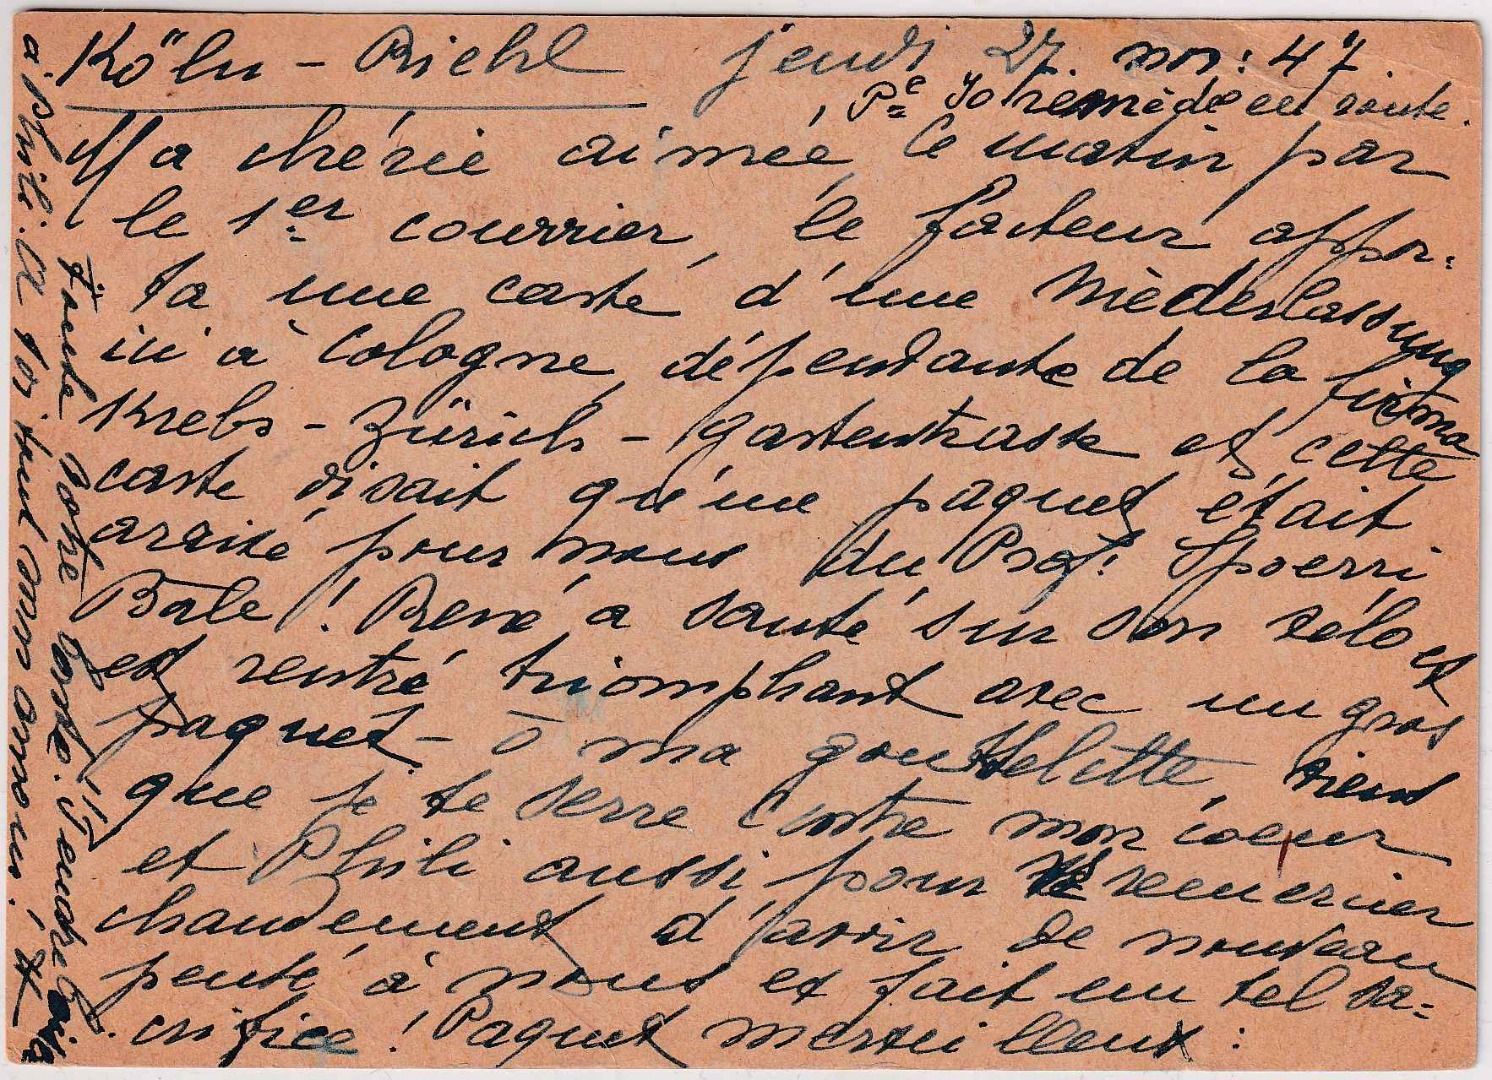 Köln - Riehl jeudi 27 nov: 47
remède en route.
Ma chérie aimée, Ce matin par
le 1er courrier, le facteur appor-
ta une carte d'une Niederlassung
ici à Cologne, dépendante de la firma
Krebs - Zürich - Gartenstrasse et cette
carte disait qu'un paquet était
arrivé pour nous du Prof. Spoerri
Bâle! René a sauté sur son vélo et
est rentré triomphant avec un gros
paquet - ô ma gouttelette, viens
que je te serre contre mon coeur
et Phili aussi pour remercier
chaudement d'avoir de nouveau
pensé à nous et fait un tel sa-
crifice! Paquet merveilleux:
à Phili. A toi tout mon amour,
Toute votre